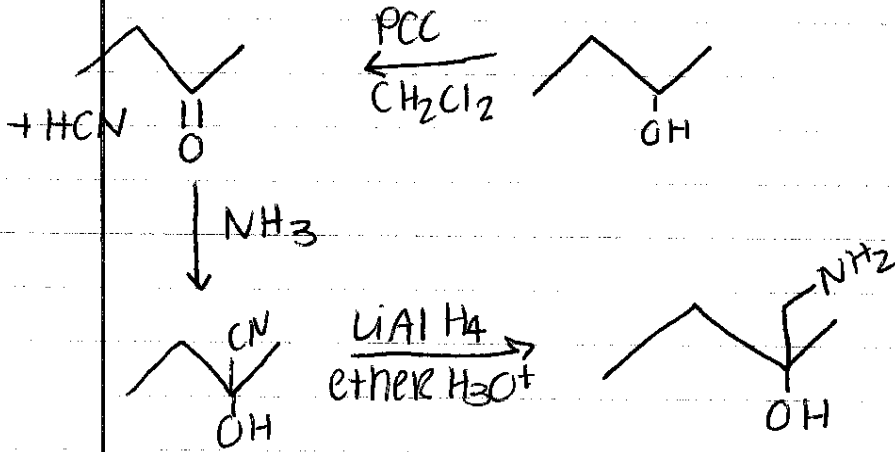 PCC
CH2Cl2
OH
+ HCN
O
NH3
CN
OH
LiAl H4
ether H3O+
NH2
OH